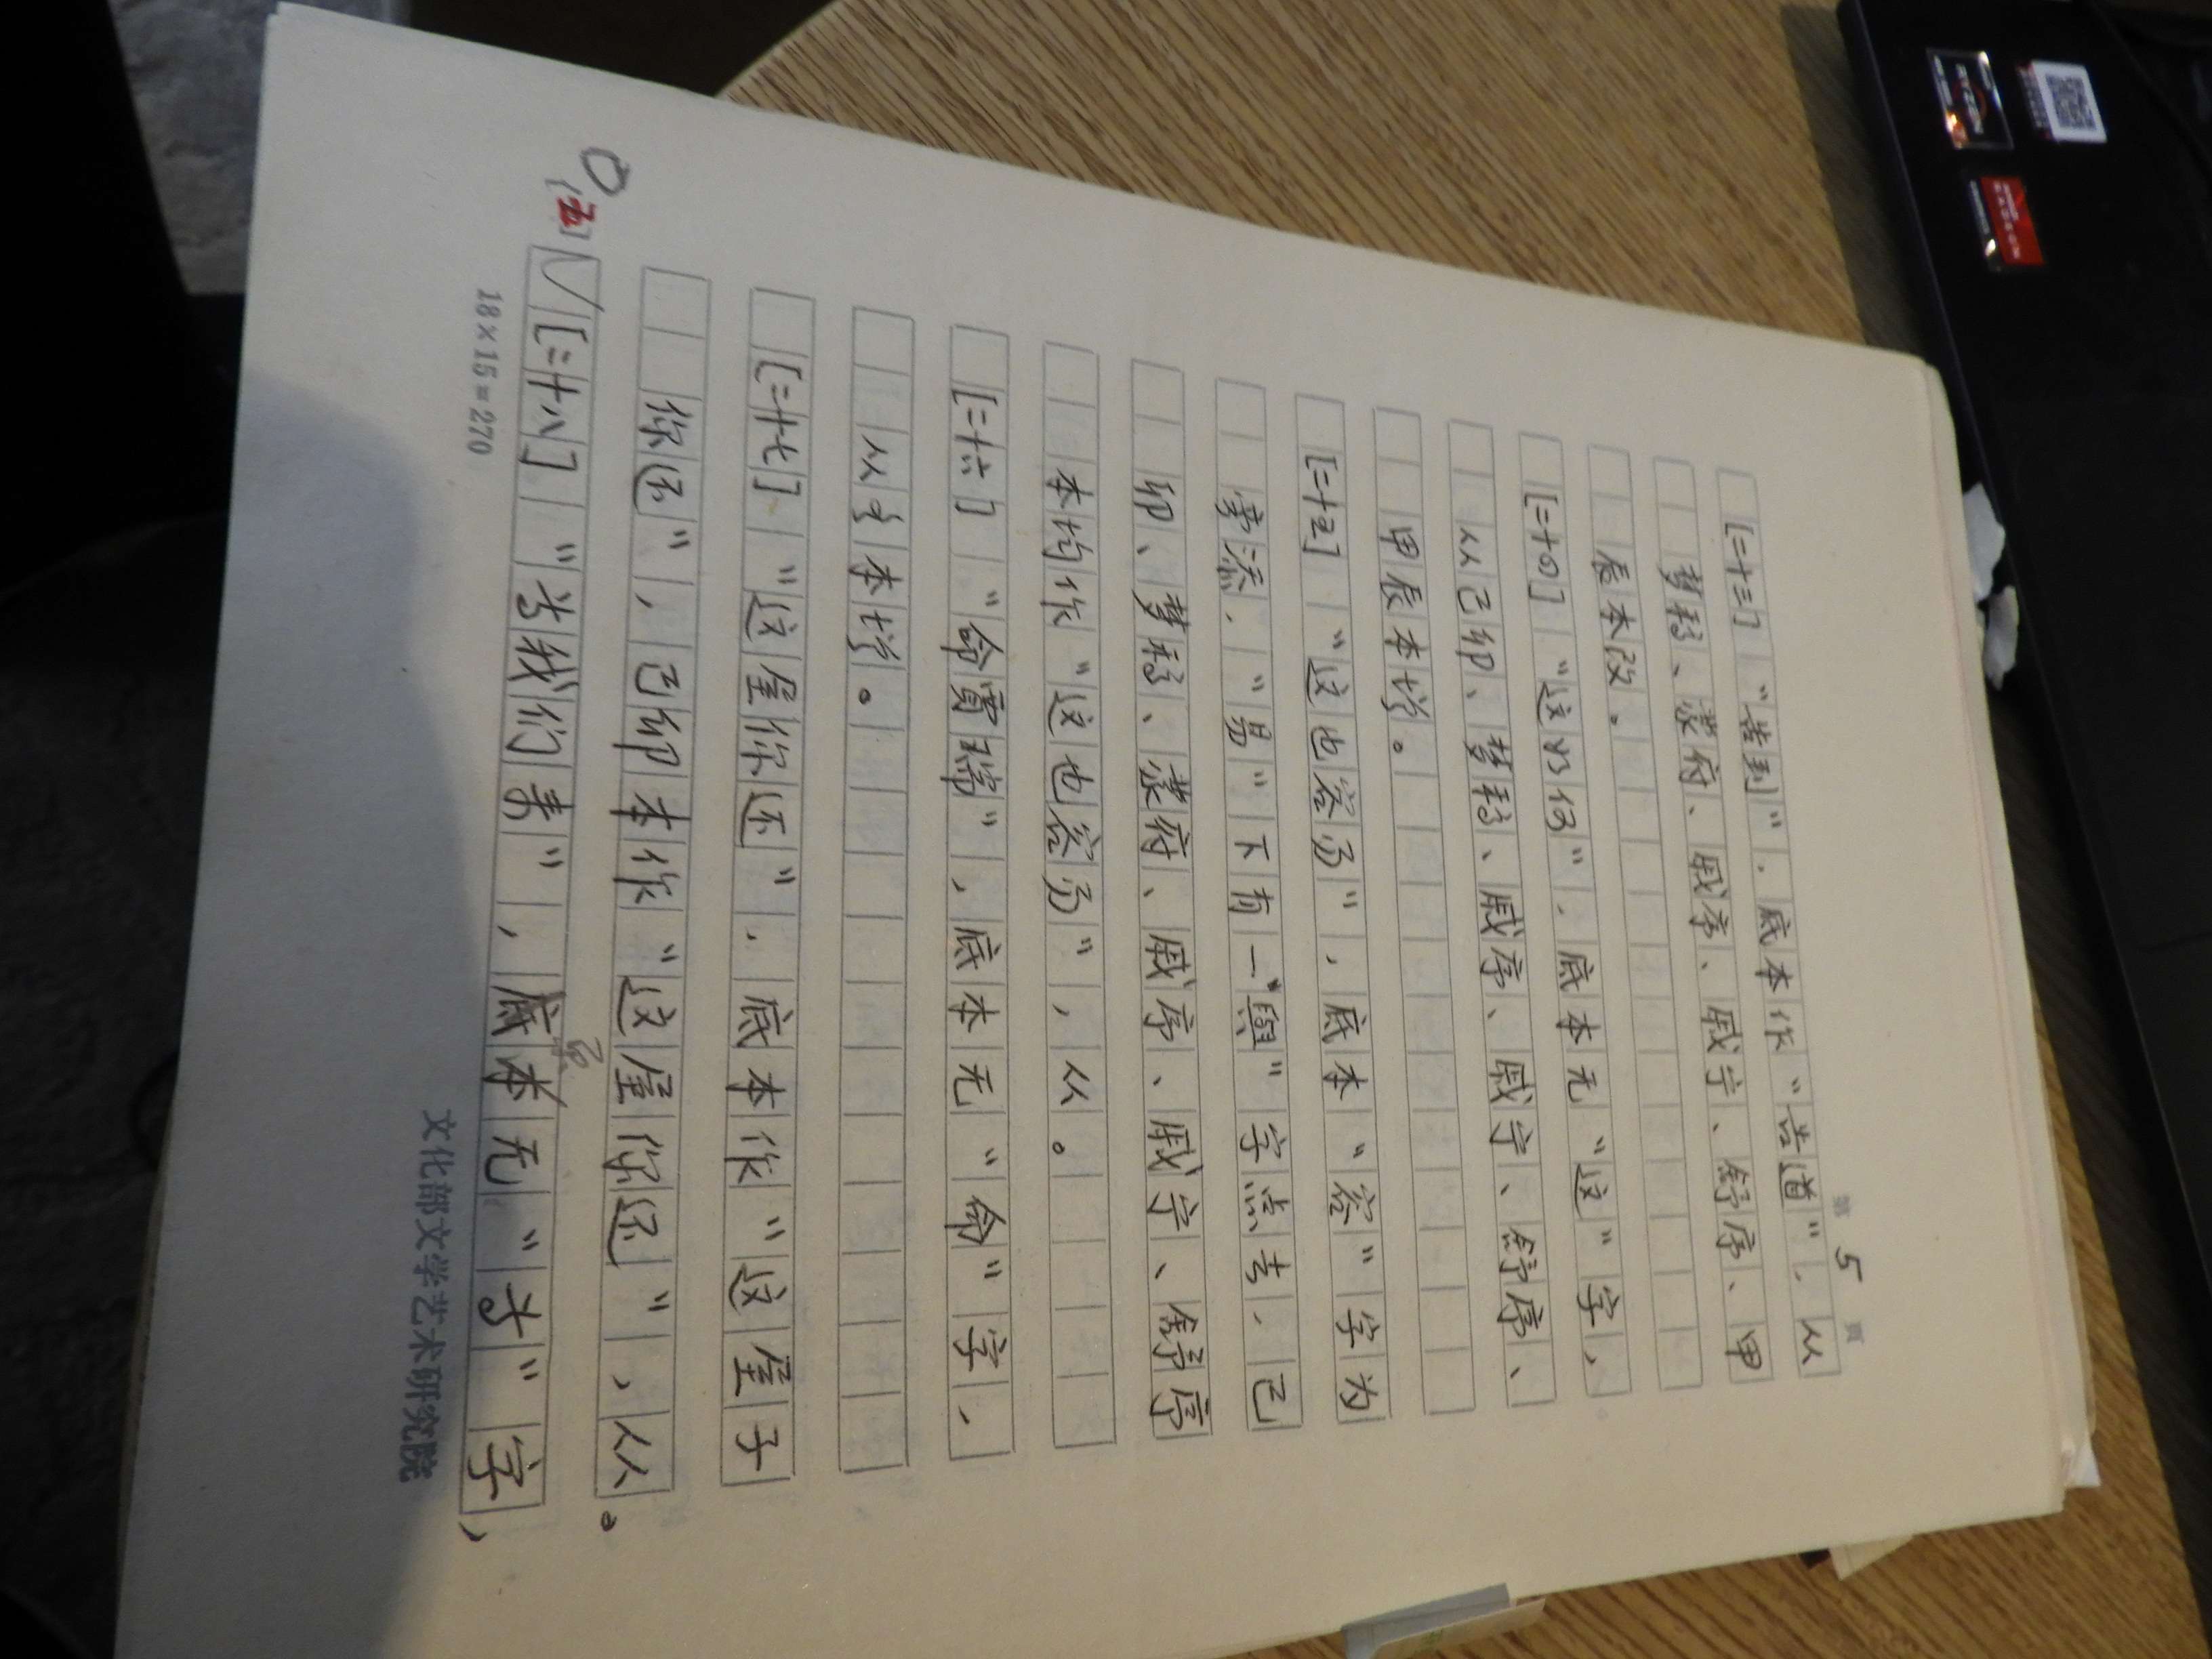 第 5 页
[二十三] “苦到”，底本作“苦道”，从
梦稿、蒙府、戚序、戚宁、舒序、甲
辰本改。
[二十四] “这如何”，底本无“这”字，
从己卯、梦稿、戚序、戚宁、舒序、
甲辰本增。
[二十五] “这也容易”，底本“容”字为
旁添，“易”下有一“與”字点去，己
卯、梦稿、蒙府、戚序、戚宁、舒序
本均作“这也容易”，从。
[二十六] “命賈瑞”，底本无“命”字，
从各本增。
[二十七] “这屋你还”，底本作“这屋子
你还”，己卯本作“这屋你还”，从。
[二十八] “为我们素”，底本无“为”字，
[五]
18×15=270
文化部文学艺术研究院
RYZEN
AMD
RADEON